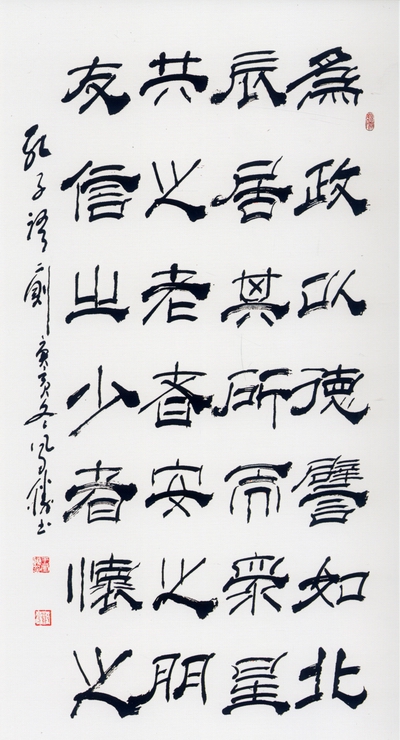 爲政以德譬如北
辰居其所而眾星
共之老者安之朋
友信之少者懷之
孔子語二則庚寅冬書